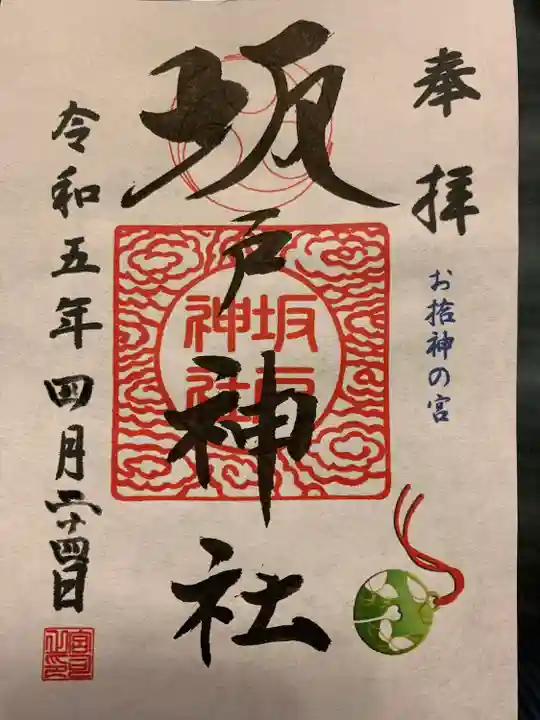 奉拝
お捨神の宮
坂戸神社
坂戸
神社
令和五年四月二十四日
宮司之印